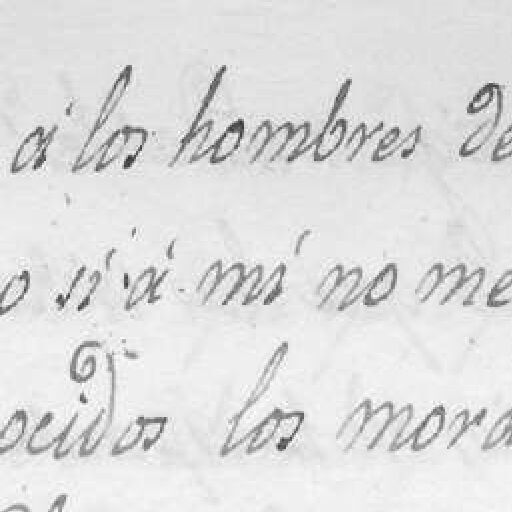 á los hombres de
o sí á mí no me
ocidos los mora